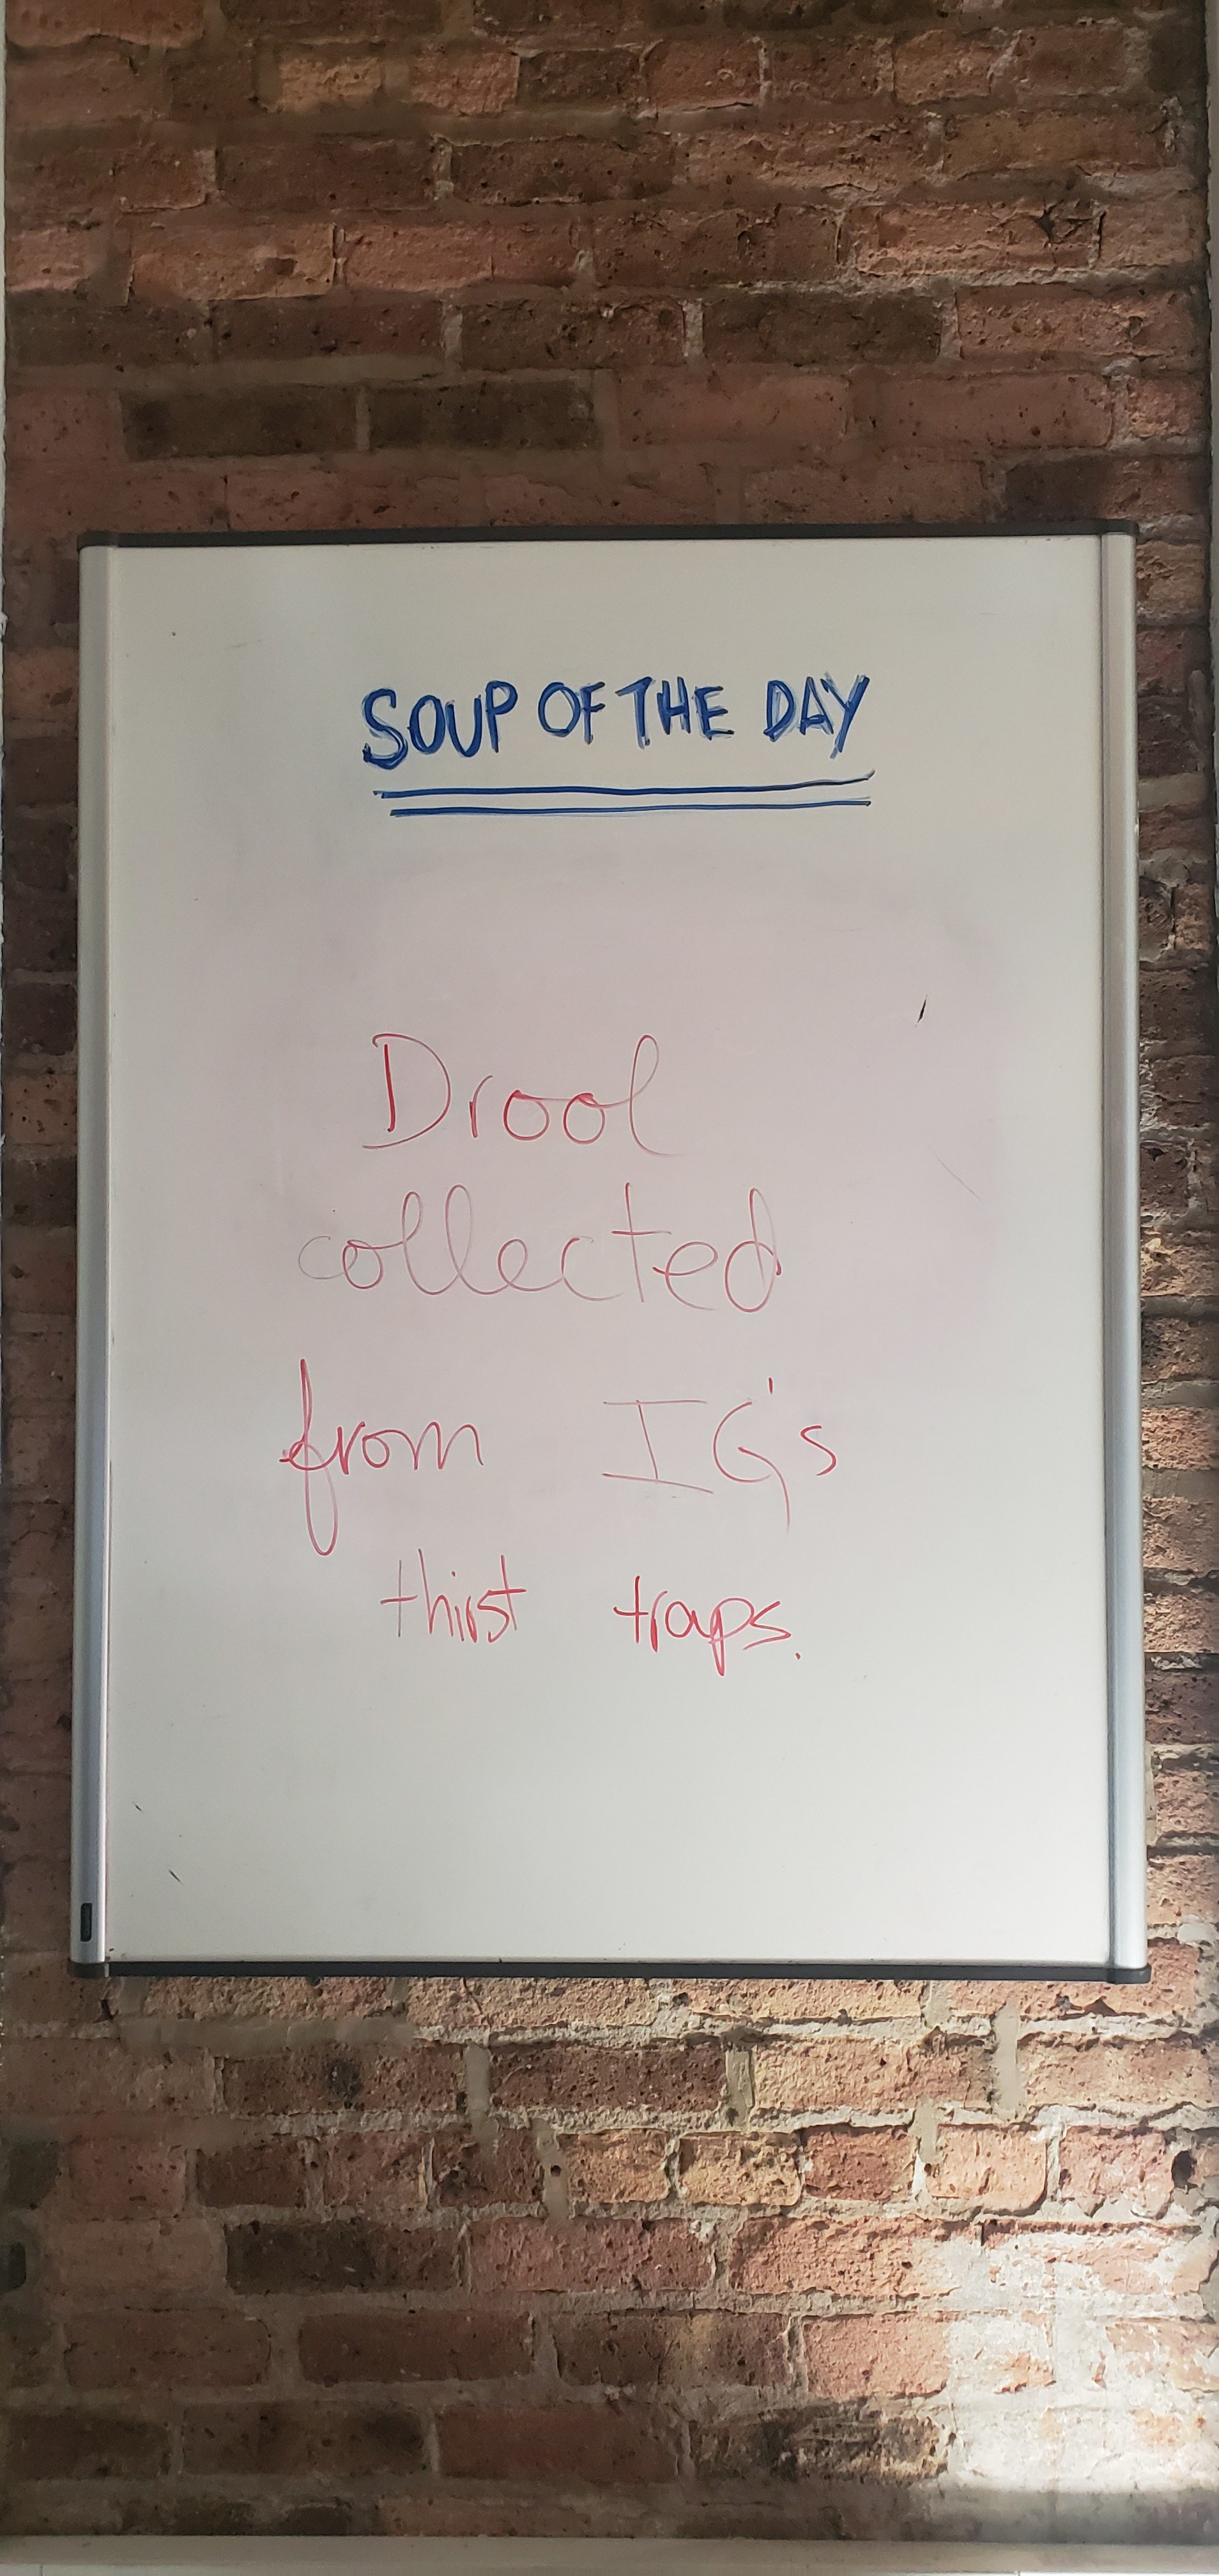 SOUP OF THE DAY
Drool
collected
from IG's
thirst traps.